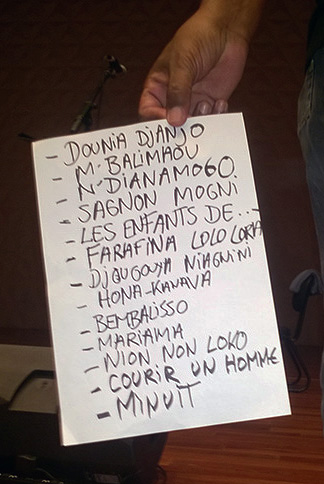 - DOUNIA DJANJO
- M'BALIMAOU
- N'DIANAMOGO.
- SAGNON MOGNI
- LES ENFANTS DE...
- FARAFINA LOLO LORA
- DJOUGOUYA NIAGNINI
- HONA-KANAVA
- BEMBALISSO
- MARIAMA
- NION NON LOKO
- COURIR UN HOMME
- MINUIT